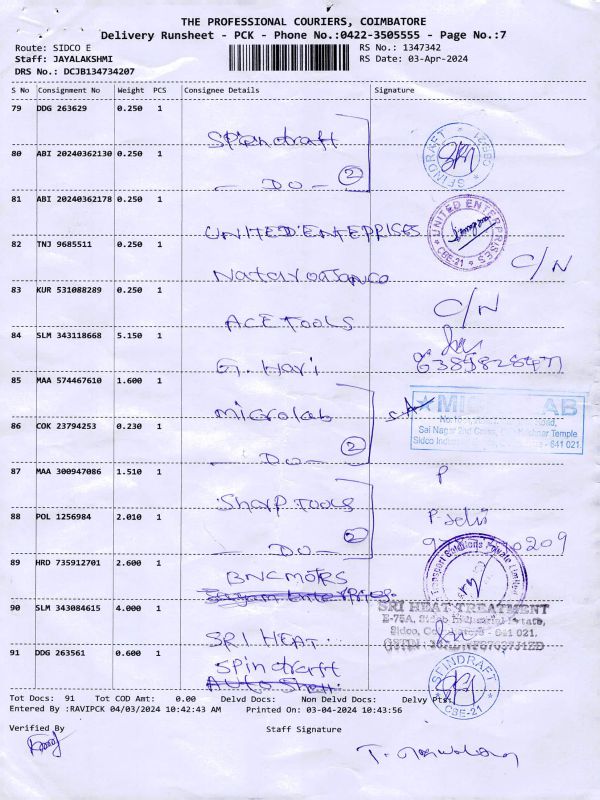 THE PROFESSIONAL COURIERS, COIMBATORE
Delivery Runsheet - PCK - Phone No.:0422-3505555 - Page No.:7
Route: SIDCO E RS No.: 1347342
Staff: JAYALAKSHMI RS Date: 03-Apr-2024
DRS No.: DCJB134734207
S No Consignment No Weight PCS Consignee Details Signature
79 DDG 263629 0.250 1
Spindraft
80 ABI 20240362130 0.250 1
SPINDRAFT
- DO - 2
81 ABI 20240362178 0.250 1
UNITED ENTERPRISES
UNITED ENTERPRISES
CBE-21
82 TNJ 9685511 0.250 1
C/N
83 KUR 531088289 0.250 1
C/N
ACE TOOLS
84 SLM 343118668 5.150 1
G. Hari
85 MAA 574467610 1.600 1
Microlab
Sai Nagar 2nd Cross,
Temple
641 021.
86 COK 23794253 0.230 1
- DO - 2
87 MAA 300947086 1.510 1
P
Sharp Tools
88 POL 1256984 2.010 1
P. Selvi
- DO - 2
89 HRD 735912701 2.600 1
Transport Solutions Private Limited
BNC MOTORS
90 SLM 343084615 4.000 1
SRI HEAT TREATMENT
641 021.
SRI HEAT.
91 DDG 263561 0.600 1
Spindraft
SPINDRAFT
CBE-21
Tot Docs: 91 Tot COD Amt: 0.00 Delvd Docs: Non Delvd Docs: Delvy Pts:
Entered By :RAVIPCK 04/03/2024 10:42:43 AM Printed On: 03-04-2024 10:43:56
Verified By Staff Signature